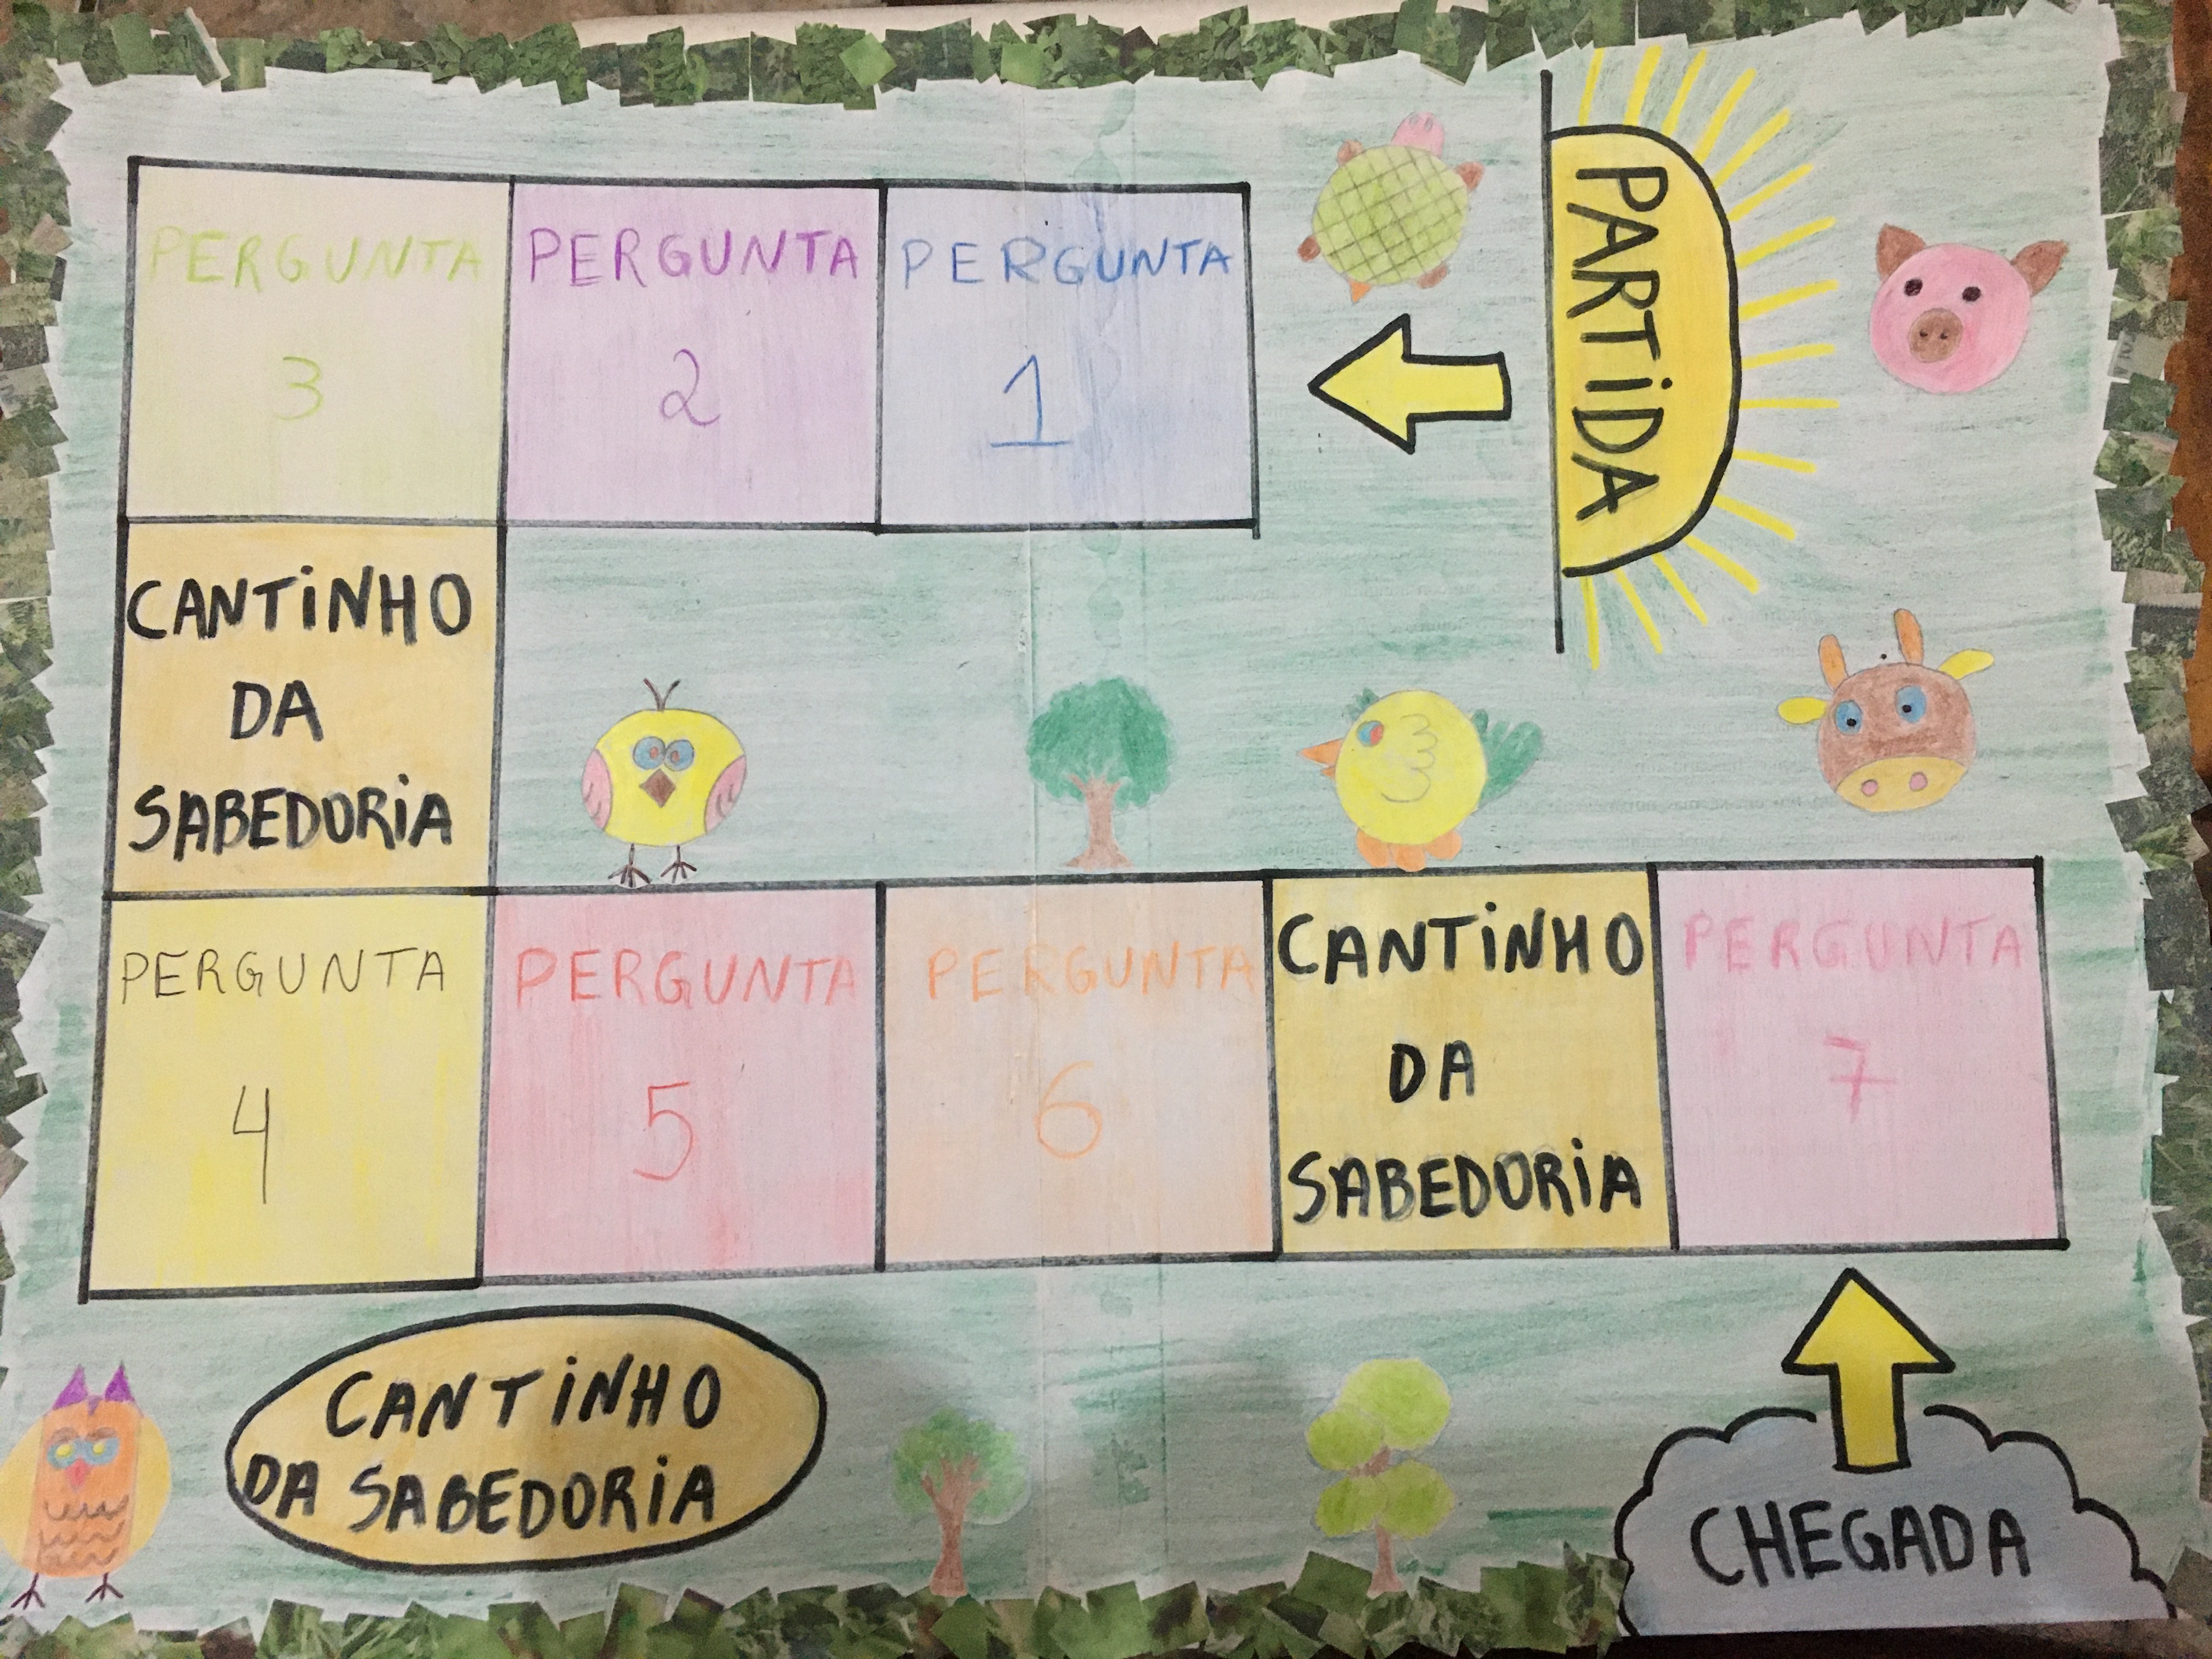 PARTIDA
PERGUNTA
1
PERGUNTA
2
PERGUNTA
3
CANTINHO
DA
SABEDORIA
PERGUNTA
4
PERGUNTA
5
PERGUNTA
6
CANTINHO
DA
SABEDORIA
PERGUNTA
7
CHEGADA
CANTINHO
DA SABEDORIA